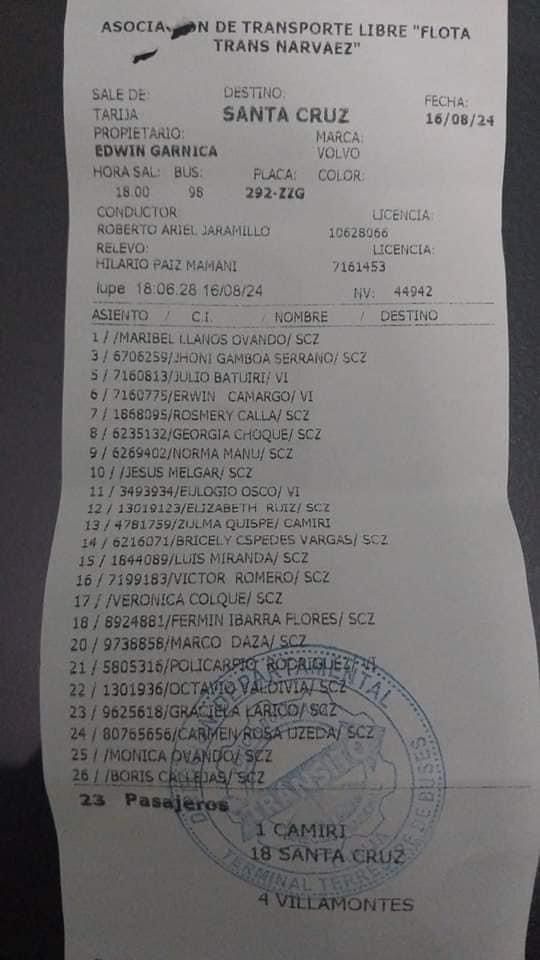 ASOCIA N DE TRANSPORTE LIBRE "FLOTA
TRANS NARVAEZ"
SALE DE: DESTINO: FECHA:
TARIJA SANTA CRUZ 16/08/24
PROPIETARIO: MARCA:
EDWIN GARNICA VOLVO
HORA SAL: BUS: PLACA: COLOR:
18.00 98 292-ZZG
CONDUCTOR LICENCIA:
ROBERTO ARIEL JARAMILLO 10628066
RELEVO: LICENCIA:
HILARIO PAIZ MAMANI 7161453
lupe 18:06.28 16/08/24 NV: 44942
ASIENTO / C.I. / NOMBRE / DESTINO
1 / /MARIBEL LLANOS OVANDO/ SCZ
3 / 6706259/JHONI GAMBOA SERRANO/ SCZ
5 / 7160813/JULIO BATUIRI/ VI
6 / 7160775/ERWIN CAMARGO/ VI
7 / 1868095/ROSMERY CALLA/ SCZ
8 / 6235132/GEORGIA CHOQUE/ SCZ
9 / 6269402/NORMA MANU/ SCZ
10 / /JESUS MELGAR/ SCZ
11 / 3493934/EULOGIO OSCO/ VI
12 / 13019123/ELIZABETH RUIZ/ SCZ
13 / 4781759/ZULMA QUISPE/ CAMIRI
14 / 6216071/BRICELY CSPEDES VARGAS/ SCZ
15 / 1844089/LUIS MIRANDA/ SCZ
16 / 7199183/VICTOR ROMERO/ SCZ
17 / /VERONICA COLQUE/ SCZ
18 / 8924881/FERMIN IBARRA FLORES/ SCZ
20 / 9738858/MARCO DAZA/ SCZ
21 / 5805316/POLICARPIO RODRIGUEZ/ VI
22 / 1301936/OCTAVIO VALDIVIA/ SCZ
23 / 9625618/GRACIELA LARICO/ SCZ
24 / 80765656/CARMEN ROSA UZEDA/ SCZ
25 / /MONICA OVANDO/ SCZ
26 / /BORIS CALLEJAS/ SCZ
23 Pasajeros
1 CAMIRI
18 SANTA CRUZ
4 VILLAMONTES
DEPARTAMENTAL
TRANSITO
TERMINAL TERRESTRE DE BUSES